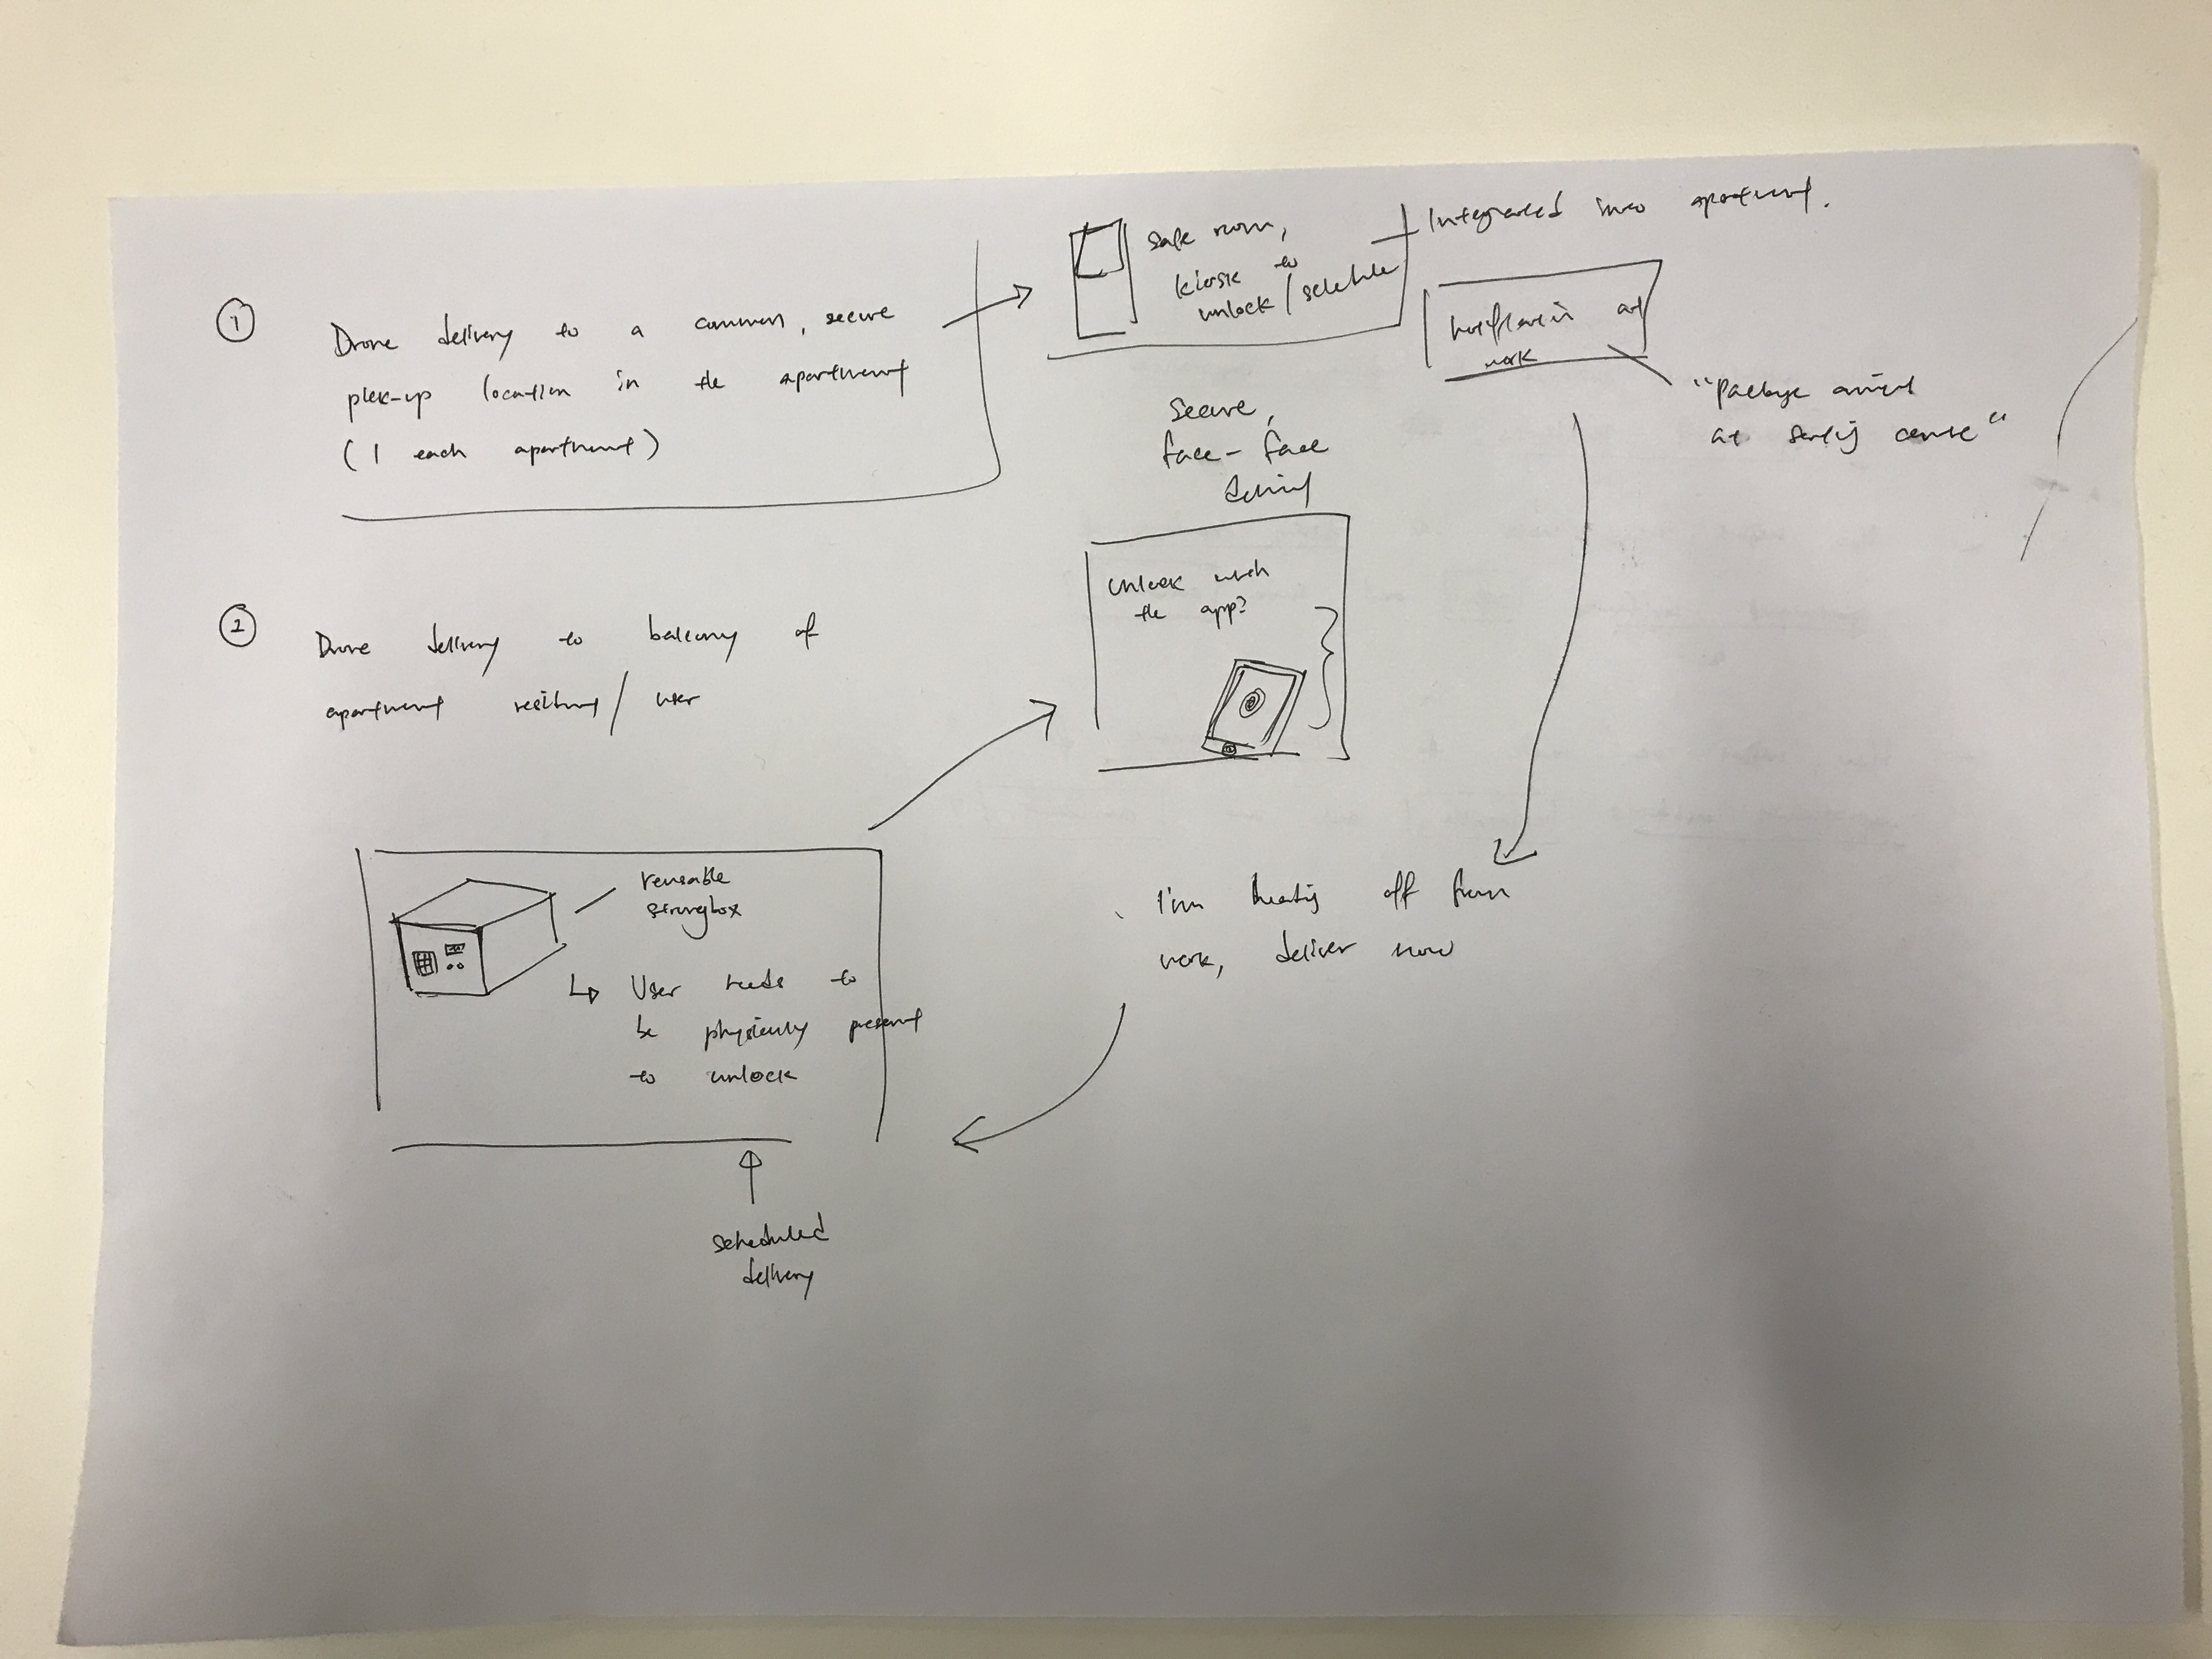 1
Drone delivery to a common, secure
pick-up location in the apartment
(1 each apartment)
safe room,
kiosk to
unlock / schedule
Integrated into apartment.
notification at
work
"Package arrived
at sorting centre"
secure,
face-face
2
Drone delivery to balcony of
apartment resident / user
unlock with
the app?
reusable
strongbox
User needs to
be physically present
to unlock
scheduled
delivery
I'm heading off from
work, deliver now